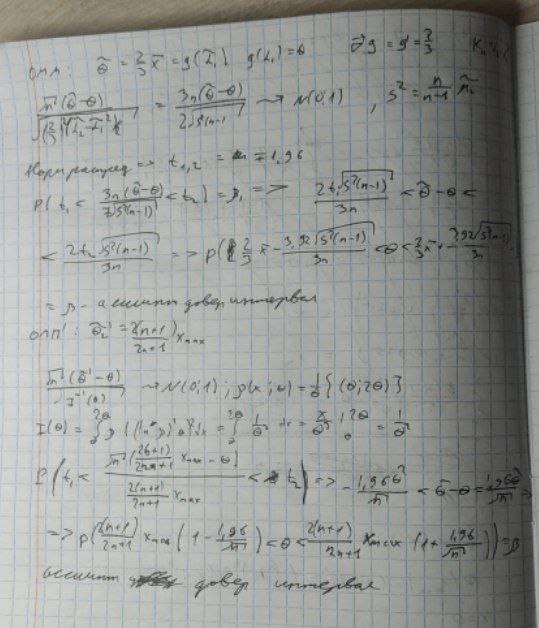 ОММ: θ̃ = 2/3 x̄ = g(α̃₁) g(α₁) = θ ∇g = g' = 2/3
√n (θ̃-θ) / = 3n(θ̃-θ) / 2√s²(n-1) → N(0,1) , s² = n/(n-1) μ̃₂
Норм распред => t₁,₂ = ∓1,96
P(t₁ < 3n(θ̃-θ) / 2√s²(n-1) < t₂) = β => 2t₁√s²(n-1) / 3n < θ̃-θ <
< 2t₂√s²(n-1) / 3n => P(2/3 x̄ - 3,92√s²(n-1) / 3n < θ < 2/3 x̄ + 3,92√s²(n-1) / 3n)
= β - ассимпт довер интервал
ОМП: θ̃ = 2(n+1)/(2n+1) xmax
√n (θ̃-θ) / √I⁻¹(θ) → N(0;1); p(x;θ) = 1/θ {(θ;2θ)}
I(θ) = ∫ p ((ln p)')² dx = ∫ 1/θ³ dx = x/θ³ | = 1/θ²
P(t₁ < √n (2(n+1)/(2n+1) xmax - θ) / 2(n+1)/(2n+1) xmax < t₂) => -1,96θ̃/√n < θ̃-θ < 1,96θ̃/√n =>
=> P(2(n+1)/(2n+1) xmax (1 - 1,96/√n) < θ < 2(n+1)/(2n+1) xmax (1 + 1,96/√n)) = β
ассимпт довер интервал